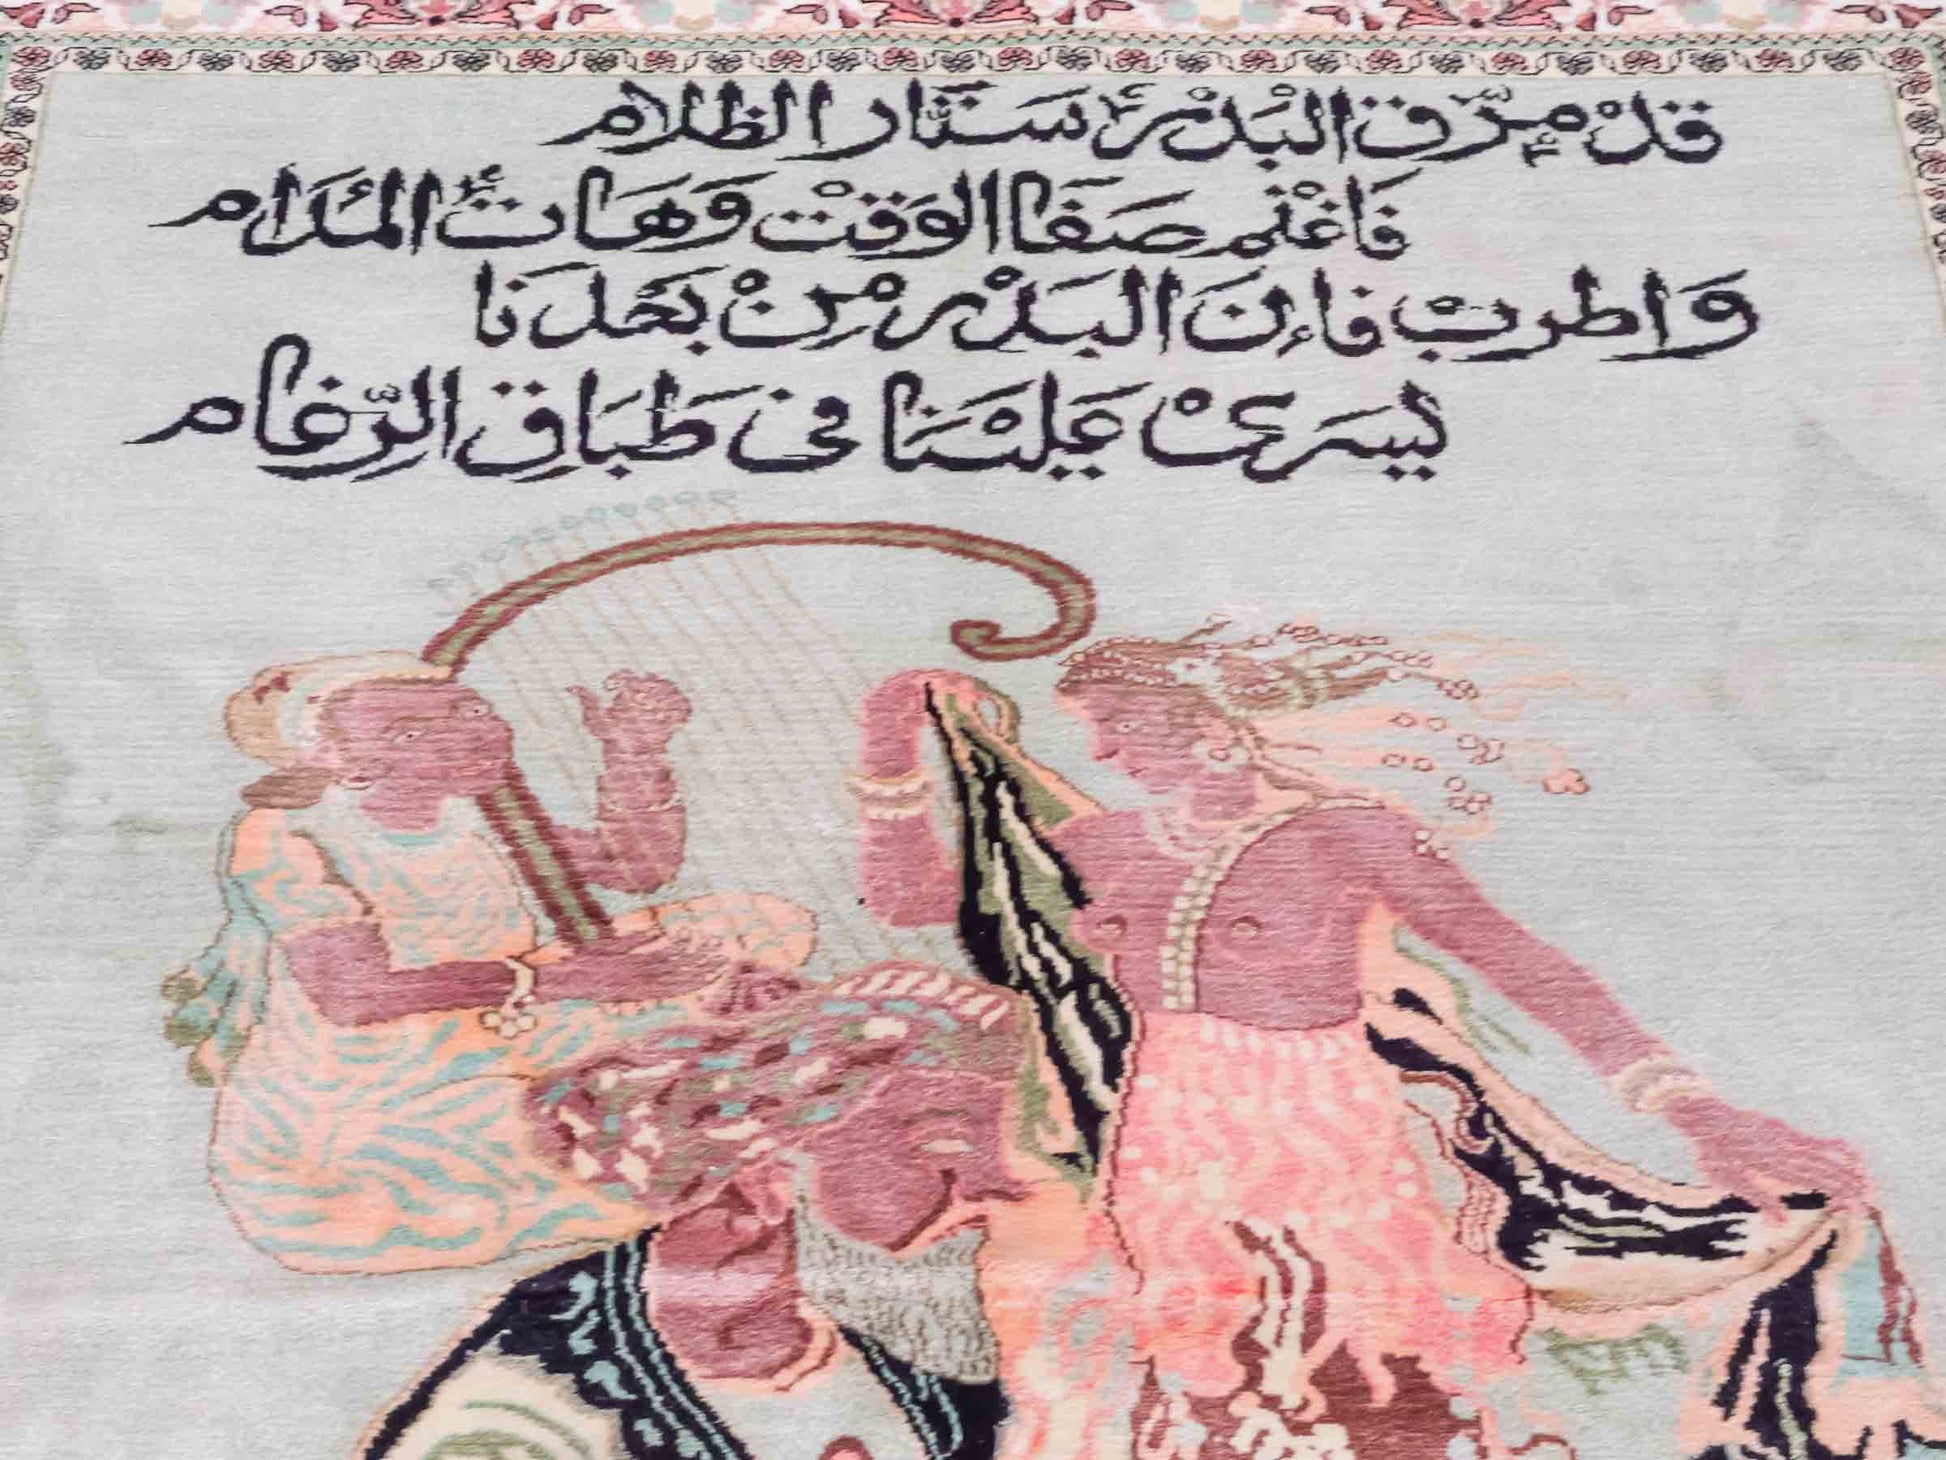 قَدْ مزّق البَدْرُ سَتَّار الظلام
فَاغْنم صَفَا الوَقْت وَهَات المُدَام
وَاطرب فإنَ البَدْر مِنْ بَعْدنَا
يسرَىْ عَليْنَا في طَبَاق الرّغام